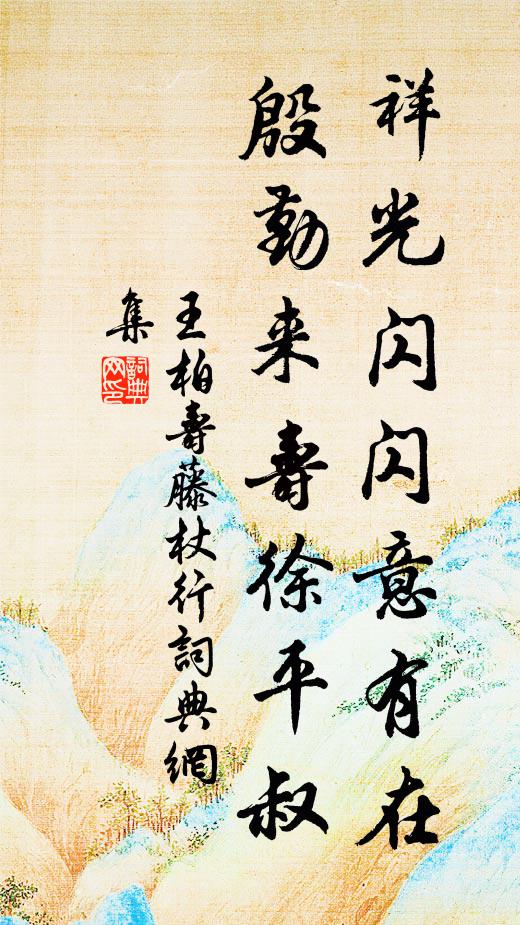 祥光闪闪意有在
殷勤来寿徐平叔
王柏寿藤杖行詞典網
集
詞典网印